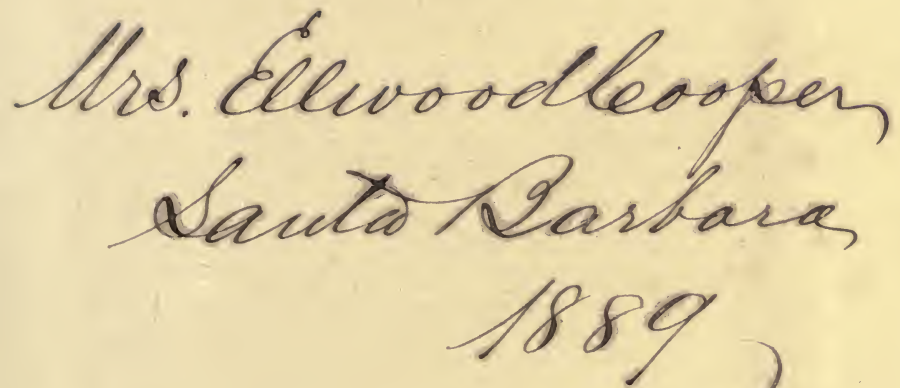 Mrs. Ellwood Cooper,
Santa Barbara,
1889